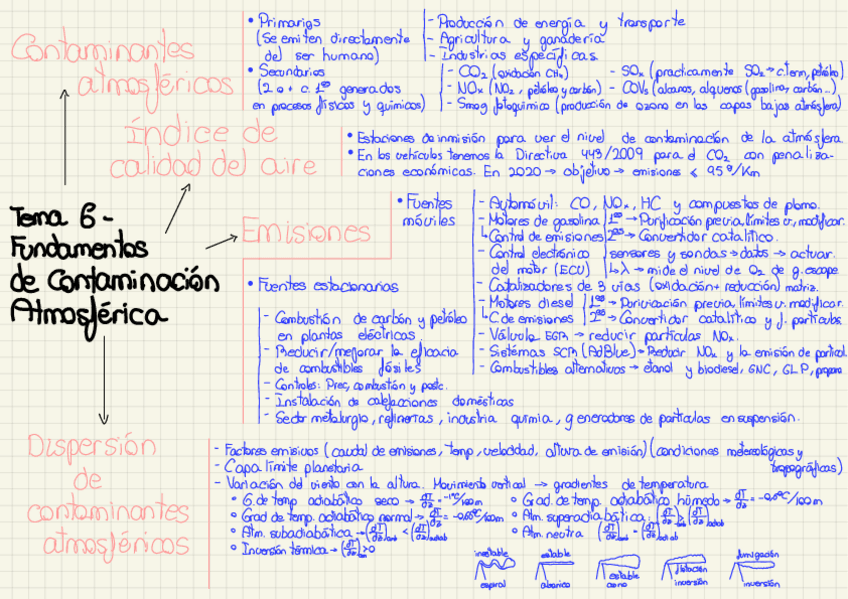 Contaminantes
atmosféricos
• Primarios
(Se emiten directamente
del ser humano)
- Producción de energía y transporte
- Agricultura y ganadería
- Industrias específicas.
• Secundarios
(2 o + c. 1ºs generados
en procesos físicos y químicos)
- CO2 (oxidación CH4)
- SOx (practicamente SO2 → c.term, petróleo)
- NOx (NO2, petróleo y carbón)
- COVs (alcanos, alquenos (gasolina, carbón...)
- Smog fotoquímico (producción de ozono en las capas bajas atmósfera)
Índice de
calidad del aire
• Estaciones de inmisión para ver el nivel de contaminación de la atmósfera.
• En los vehículos tenemos la Directiva 443/2009 para el CO2 con penaliza-
ciones económicas. En 2020 → objetivo → emisiones < 95 g/Km
Tema 6 -
Fundamentos
de Contaminación
Atmosférica
Emisiones
• Fuentes
móviles
- Automóvil: CO, NOx, HC y compuestos de plomo.
- Motores de gasolina
↳ Control de emisiones
1ºs → Purificación previa, límites v. modificar.
2ºs → Convertidor catalítico.
- Control electrónico
del motor (ECU)
sensores y sondas → datos → actuar.
↳ λ → mide el nivel de O2 de g. escape
- Catalizadores de 3 vías (oxidación + reducción) matriz.
- Motores diesel
↳ C de emisiones
1ºs → Purificación previa, límites v. modificar.
2ºs → Convertidor catalítico y f. partículas.
- Válvula EGR → reducir partículas NOx.
- Sistémas SCR (AdBlue) → Reducir NOx y la emisión de particul.
- Combustibles alternativos → etanol y biodiesel, GNC, GLP, propano
• Fuentes estacionarias
- Combustión de carbón y petróleo
en plantas eléctricas
- Reducir/mejorar la eficacia
de combustibles fósiles
- Controles: Prec, combustión y postc.
- Instalación de calefacciones domésticas
- Sector metalurgia, refinerías, industria química, generadores de partículas en suspensión.
Dispersión
de
contaminantes
atmosféricos
- Factores emisivos (caudal de emisiones, temp, velocidad, altura de emisión) (condiciones meteorológicas y
topográficas)
- Capa límite planetaria
- Variación del viento con la altura. Movimiento vertical → gradientes de temperatura
• G. de temp adiabático seco → dT/dz = -1ºC/100m
• Grad. de temp. adiabático húmedo → dT/dz = -0.6ºC/100m
• Grad de temp. adiabático normal → dT/dz = -0.65ºC/100m
• Atm. superadiabática:
• Atm. subadiabática → (dT/dz)amb < (dT/dz)adiab
• Atm. neutra (dT/dz)amb = (dT/dz)adiab
• Inversión térmica → (dT/dz) > 0
inestable
espiral
estable
abanico
estable
cono
flotación
inversión
fumigación
inversión